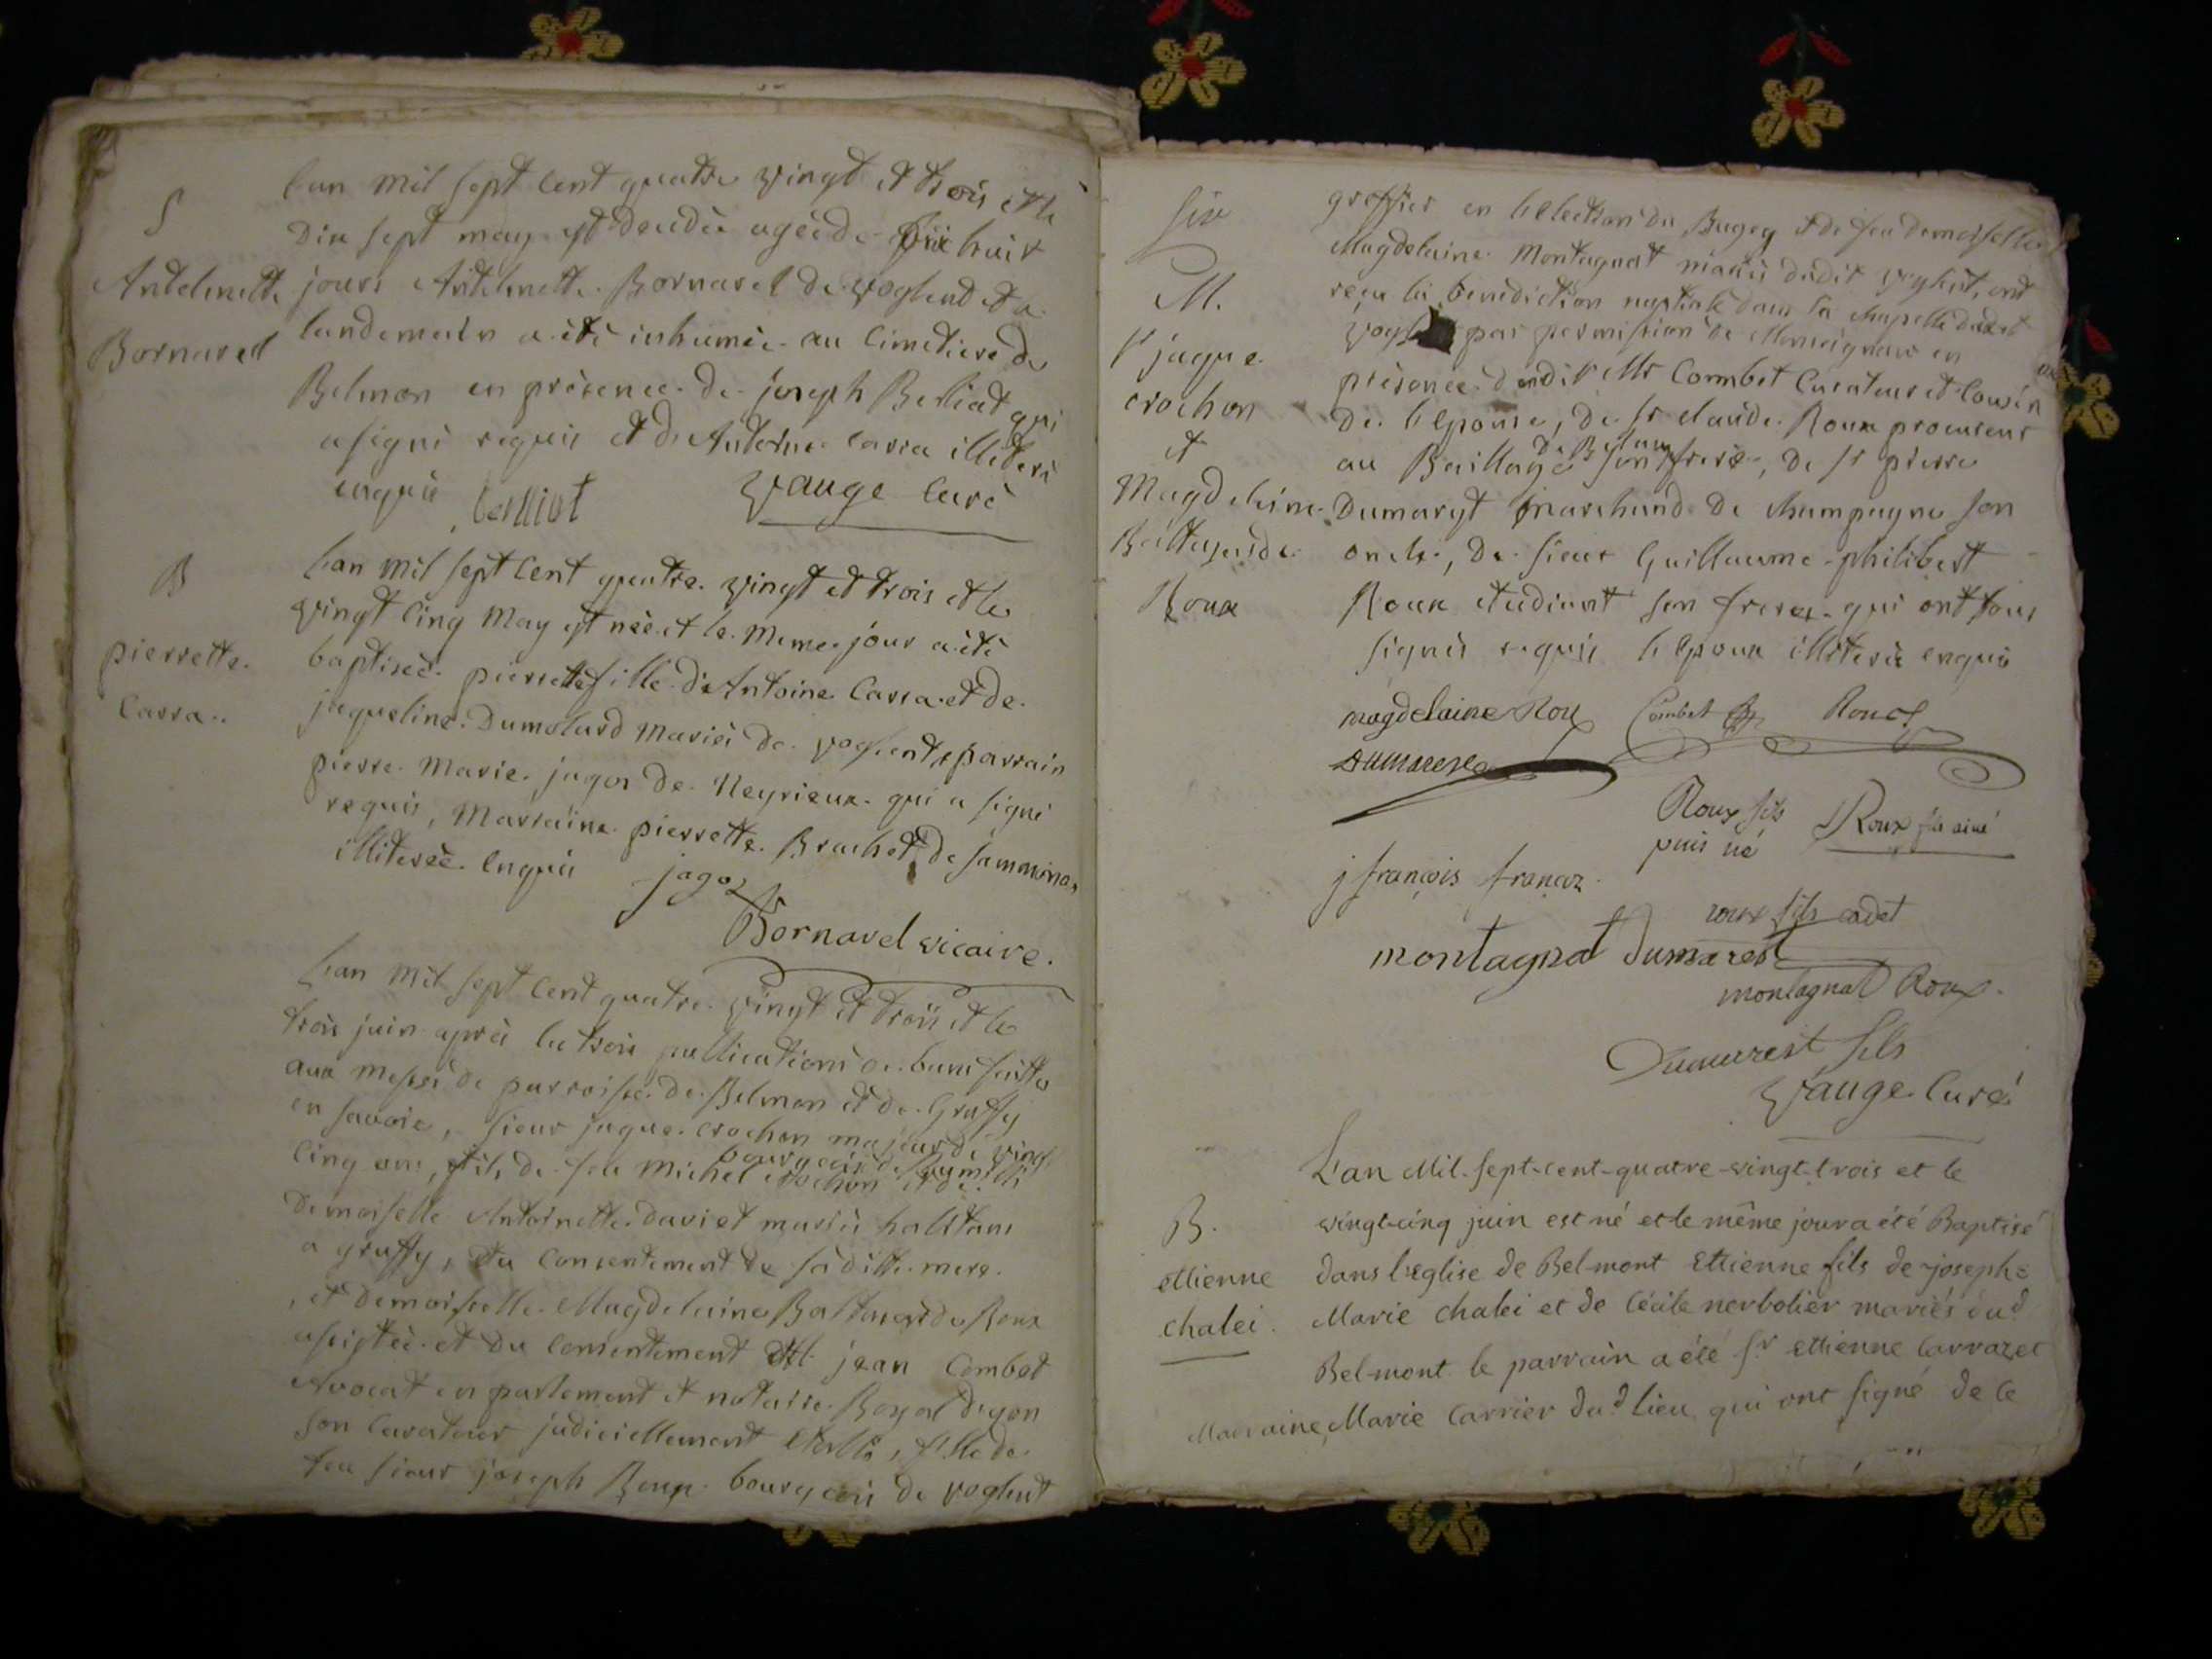 S
Antelmette
Bornarel
L'an mil sept cent quatre vingt et trois et le
dix sept may est decédée agée de dix huit
jours Antelmette Bornarel de voglent et le
landemain a été inhumée au cimetiere de
Belmon en présence de joseph Berliat qui
a signé requis et d'Antoine Carra illiteré
enquis berlliat vauge curé
B
pierrette
Carra
L'an mil sept cent quatre vingt et trois et le
vingt cinq may est née et le meme jour a été
baptisée pierrette fille d'Antoine Carra et de
jaqueline Dumolard mariés de voglent, parrain
pierre marie jagos de Neyrieux qui a signé
requis, marraine pierrette Brachet de Sammina,
illiterée enquis jagoz
Bornarel vicaire.
L'an mil sept cent quatre vingt et trois et le
trois juin après les trois publications de bans faittes
aux messes de parroisse de Belmon et de Gruffy
en Savoie, sieur jaque crochon majeur de vingt
bourgeois de Rumilli
cinq ans, fils de feu michel crochon et de
demoiselle Antoinette daviet mariés habitans
a gruffy, du consentement de sa ditte mere
, et demoiselle Magdelaine Baltazarde Roux
assistée et du consentement de Mr jean Combet
Avocat en parlement et notaire Royal
son curateur judiciellement établi, fille de
feu sieur joseph Roux bourgeois de voglent
six
M.
Sr jaque
crochon
et
Magdeleine
Baltazarde
Roux
greffier en l'election du Bugey et de feu demoiselle
Magdelaine Montagnat mariés dudit voglent, ont
reçu la bénédiction nuptiale dans la chapelle dudit
vogl par permission de Monseigneur en
présence dudit Mr Combet curateur et cousin
de l'epouse, de Sr claude Roux procureur
de Belley
au Baillage son frere, de Sr pierre
Dumarest marchand de champagne son
oncle, de sieur Guillaume-philibert
Roux etudiant son frere qui ont tous
signés requis l'epoux illiteré enquis
magdelaine Roux Combet Roux
Dumarest
Roux fils
puis né
Roux fils ainé
j françois francoz
roux fils cadet
montagnat dumarest
montagnat Roux.
Dumarest fils
vauge curé
B.
ettienne
chalei.
L'an Mil-sept-cent-quatre-vingt-trois et le
vingt-cinq juin est né et le même jour a été Baptisé
dans l'eglise de Belmont ettienne fils de joseph=
Marie chalei et de Cécile nerbolier mariés dud.
Bel-mont le parrain a été Sr ettienne Carrazet
Marraine, Marie Carrier dud lieu qui ont signé de ce